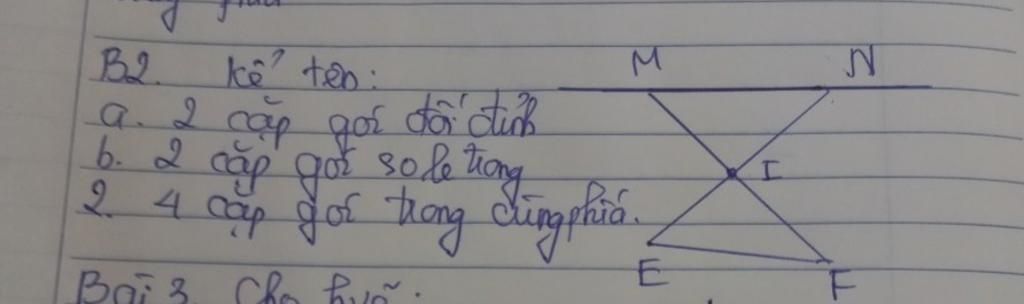 B2. Kể tên:
a. 2 cặp góc đối đỉnh
b. 2 cặp góc so le trong
2. 4 cặp góc trong cùng phía.
M N
I
E F
Bài 3. Cho